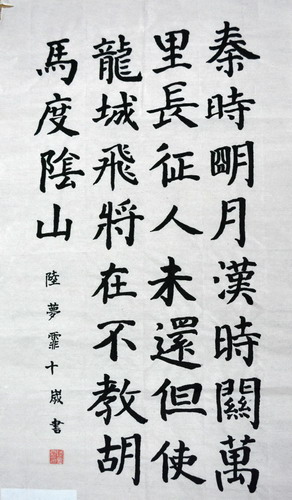 秦時明月漢時關萬
里長征人未還但使
龍城飛將在不教胡
馬度陰山
陸夢霏十歲書